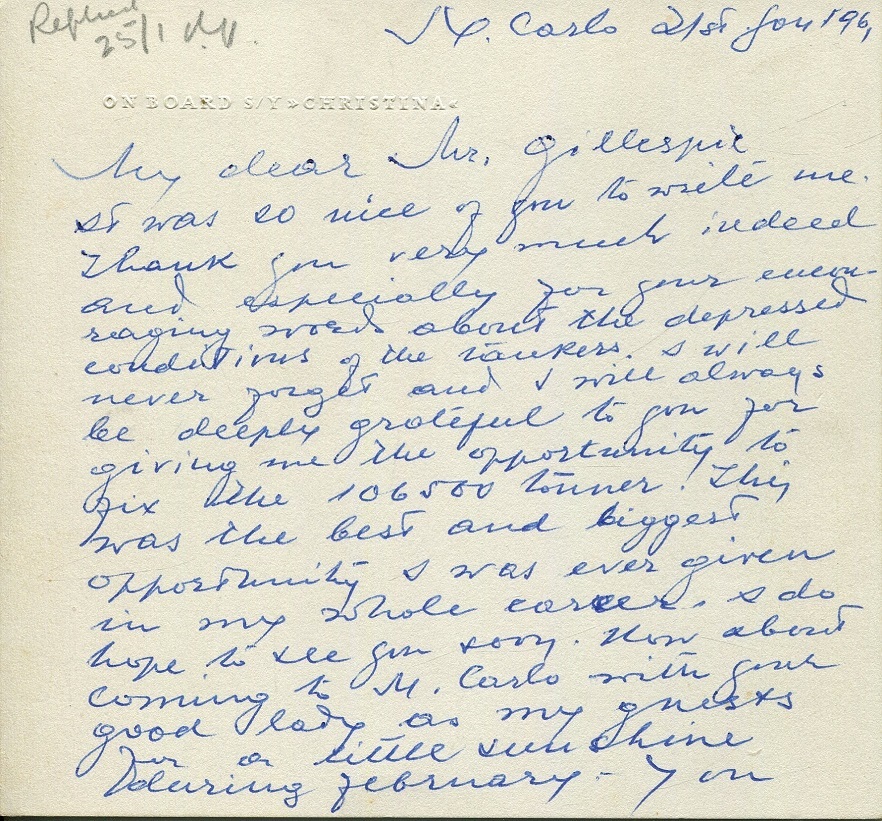 Replied
25/1
M. Carlo 21st Jan 1961
ON BOARD S/Y »CHRISTINA«
My dear Mr. Gillespie
It was so nice of you to write me.
Thank you very much indeed
and especially for your encou-
raging words about the depressed
conditions of the tankers. I will
never forget and I will always
be deeply grateful to you for
giving me the opportunity to
fix the 106500 tonner. This
was the best and biggest
opportunity I was ever given
in my whole career. I do
hope to see you soon. How about
coming to M. Carlo with your
good lady as my guests
for a little sunshine
during february - You